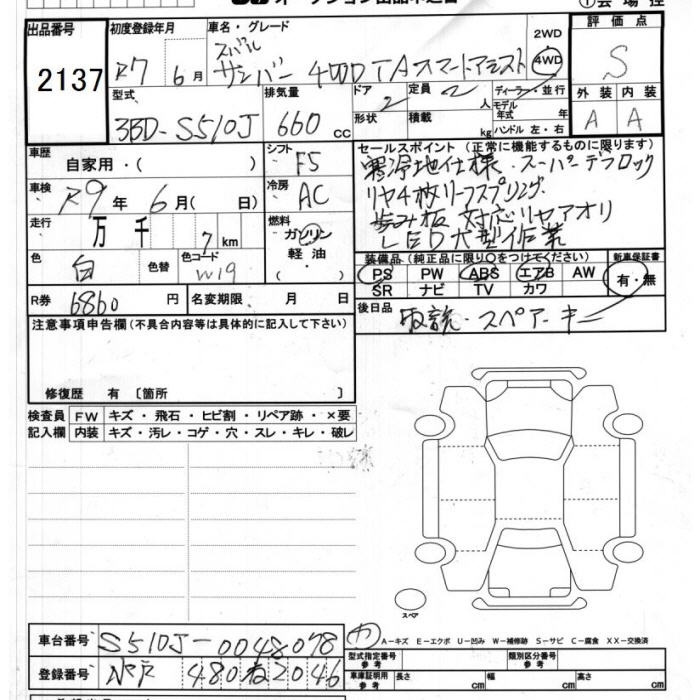 出品番号 2137
初度登録年月 R7 6月
車名・グレード スバル サンバー 4WD TAスマートアシスト
2WD 4WD
評価点 S
型式 3BD-S510J
排気量 660 cc
ドア 2 形状
定員 2 人 積載 kg
ディーラー・並行 モデル年式 年 ハンドル 左・右
外装 内装 A A
車歴 自家用・( )
シフト F5
車検 R9年6月( 日)
冷房 AC
走行 万 千 7km
燃料 ガソリン 軽油・
色 白 色替 色コード W19
R券 6860円 名変期限、 月 日
セールスポイント(正常に機能するものに限ります)
寒冷地仕様・スーパーデフロック
リヤ4枚リーフスプリング
歩み板対応リヤアオリ
LED大型作業
装備品(純正品に限り○をつけてください)
PS PW ABS エアB AW
SR ナビ TV カワ
新車保証書 有・無
後日品 取説・スペアーキー
注意事項申告欄(不具合内容等は具体的に記入して下さい)
修復歴 有〔箇所 〕
検査員 FW キズ・飛石・ヒビ割・リペア跡・×要
記入欄 内装 キズ・汚レ・コゲ・穴・スレ・キレ・破レ
スペア
車台番号 S510J-0048078
登録番号 480 2046
A-キズ E-エクボ U-凹み W-補修跡 S-サビ C-腐食 XX-交換済
型式指定番号 参考 類別区分番号 参考
車庫証明用 参考 長さ cm 幅 cm 高さ cm